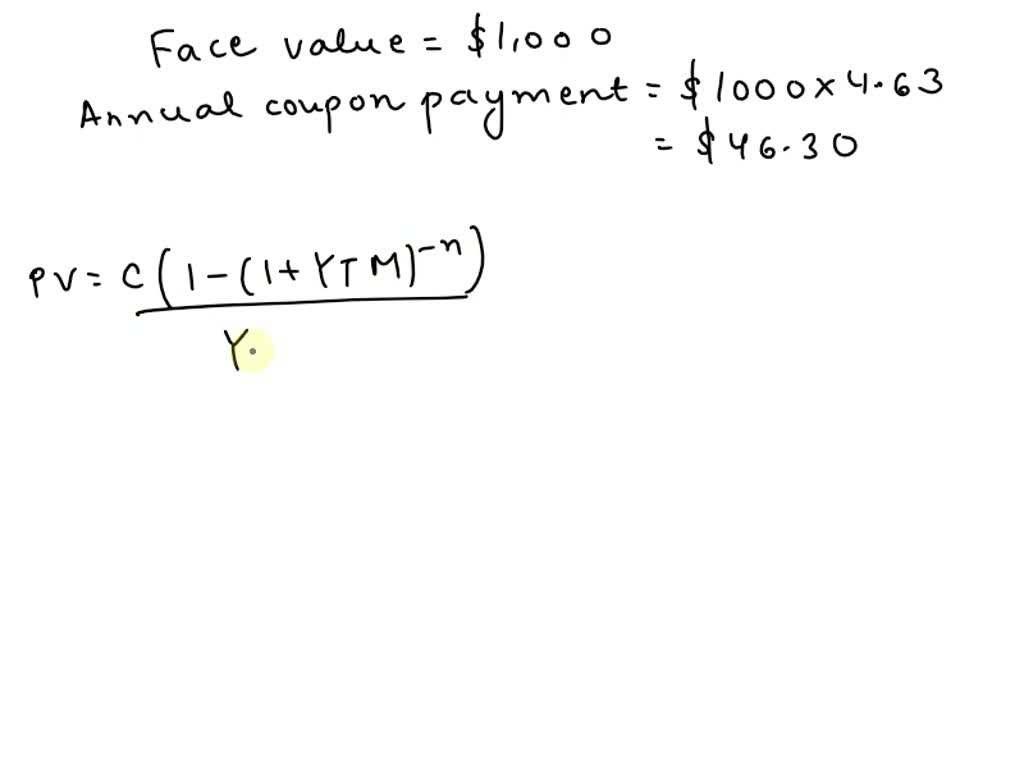 Face value = $1,000
Annual coupon payment = $1000 x 4.63
= $46.30
PV = C(1-(1+YTM)^-n)
Y